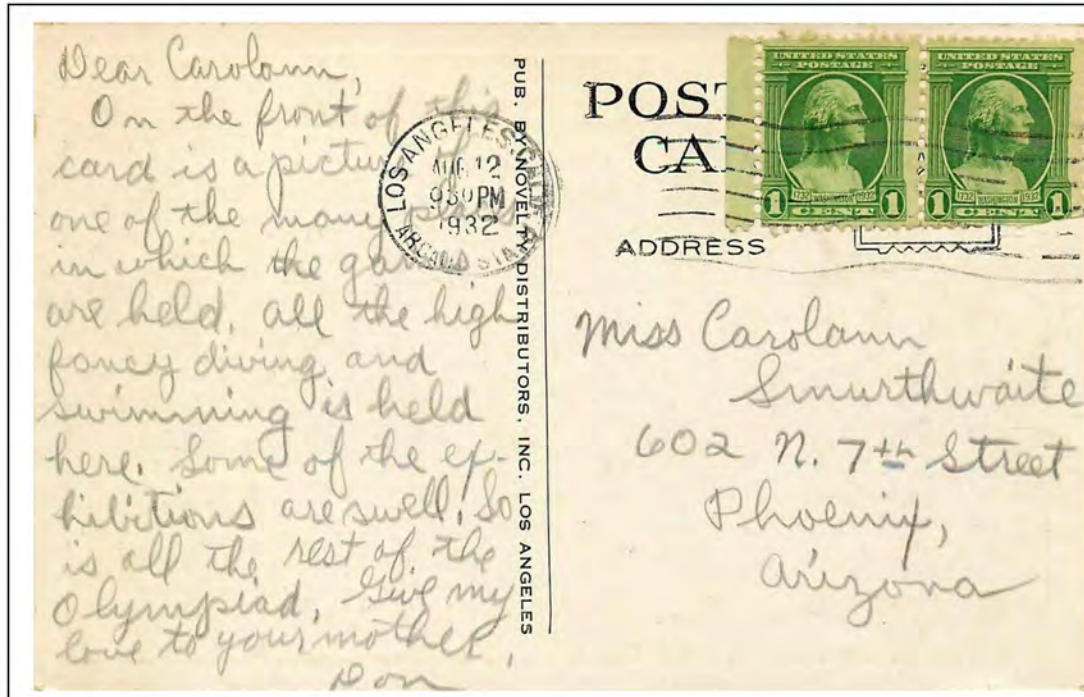 Dear Carolann,
On the front of this
card is a picture
one of the many
in which the games
are held, all the high
fancy diving and
swimming is held
here. Some of the ex-
hibitions are swell. So
is all the rest of the
Olympiad. Give my
love to your mother,
Don
PUB. BY NOVELTY DISTRIBUTORS, INC. LOS ANGELES
LOS ANGELES, CALIF
AUG 12
930 PM
1932
ARCADE STA
POST
CA
ADDRESS
UNITED STATES
POSTAGE
1732 WASHINGTON 1932
1 CENT 1
UNITED STATES
POSTAGE
1732 WASHINGTON 1932
1 CENT 1
Miss Carolann
Smurthwaite
602 N. 7th Street
Phoenix,
Arizona